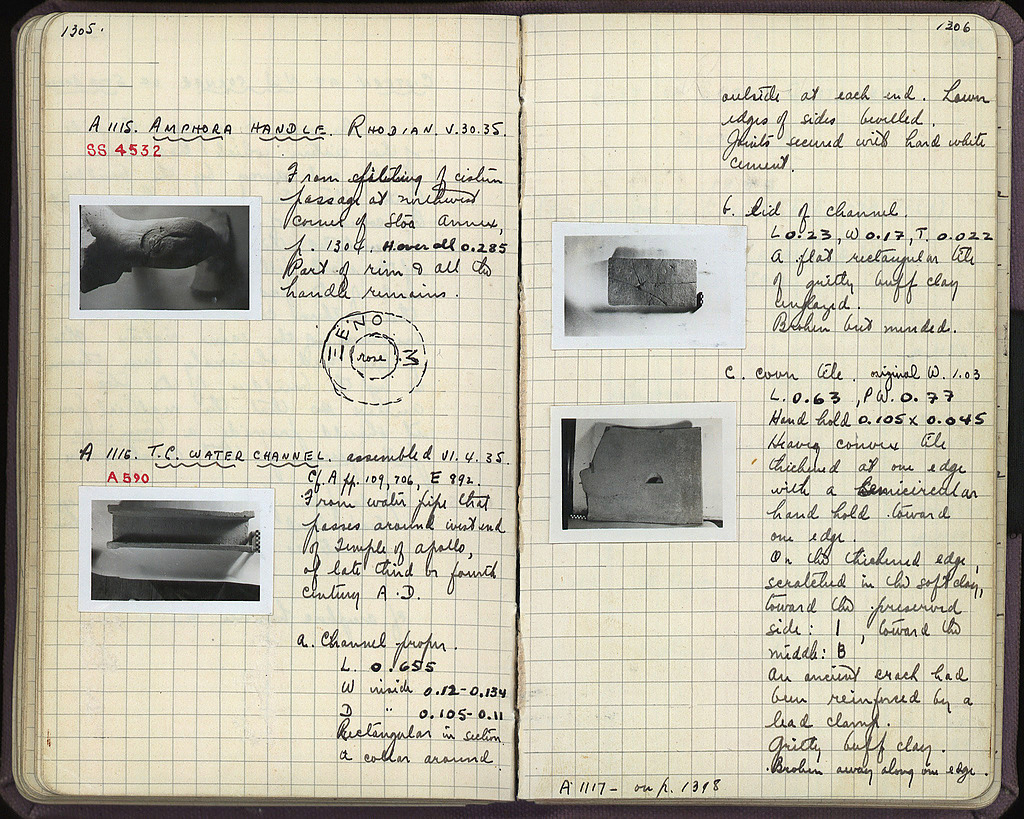 1305.
A 1115. AMPHORA HANDLE. RHODIAN. V.30.35.
SS 4532
From filling of cistern
passage at northwest
corner of Stoa Annex,
p. 1304. H. over all 0.285
Part of rim & all the
handle remains.
ΞENO M
rose
A 1116. T.C. WATER CHANNEL. assembled VI.4.35.
A 590
Cf. A pp. 109, 706, E 892.
From water pipe that
passes around west end
of Temple of Apollo,
of late third or fourth
century A.D.
a. Channel proper.
L. 0.655
W inside 0.12-0.134
D " 0.105-0.11
Rectangular in section.
A collar around
1306
outside at each end. Lower
edges of sides bevelled.
Joints secured with hard white
cement.
b. Lid of channel.
L 0.23, W 0.17, T. 0.022
A flat rectangular tile
of gritty buff clay
unglazed.
Broken but mended.
C. Cover tile. original W. 1.03
L. 0.63, P.W. 0.77
Hand hold 0.105 x 0.045
Heavy convex tile
thickened at one edge
with a semicircular
hand hold toward
one edge.
On the thickened edge,
scratched in the soft clay,
toward the preserved
side: I, toward the
middle: B
An ancient crack had
been reinforced by a
lead clamp.
Gritty buff clay.
Broken away along one edge.
A 1117 - on p. 1398